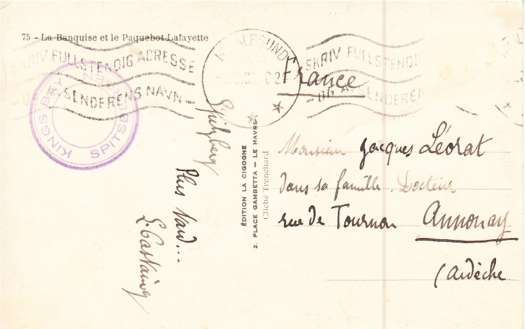 75 - La Banquise et le Paquebot Lafayette
SKRIV FULLSTENDIG ADRESSE
SENDERENS NAVN
KINGSBAY
SPITSB
SKRIV FULLSTENDIG
OG SENDERENS
France
Spitzberg
Plus Nord...
ÉDITION LA CIGOGNE
2. PLACE GAMBETTA — LE HAVRE
Cliché Frenchard
Monsieur Jacques Léorat
dans sa famille Docteur
rue de Tournon Annonay
(Ardèche